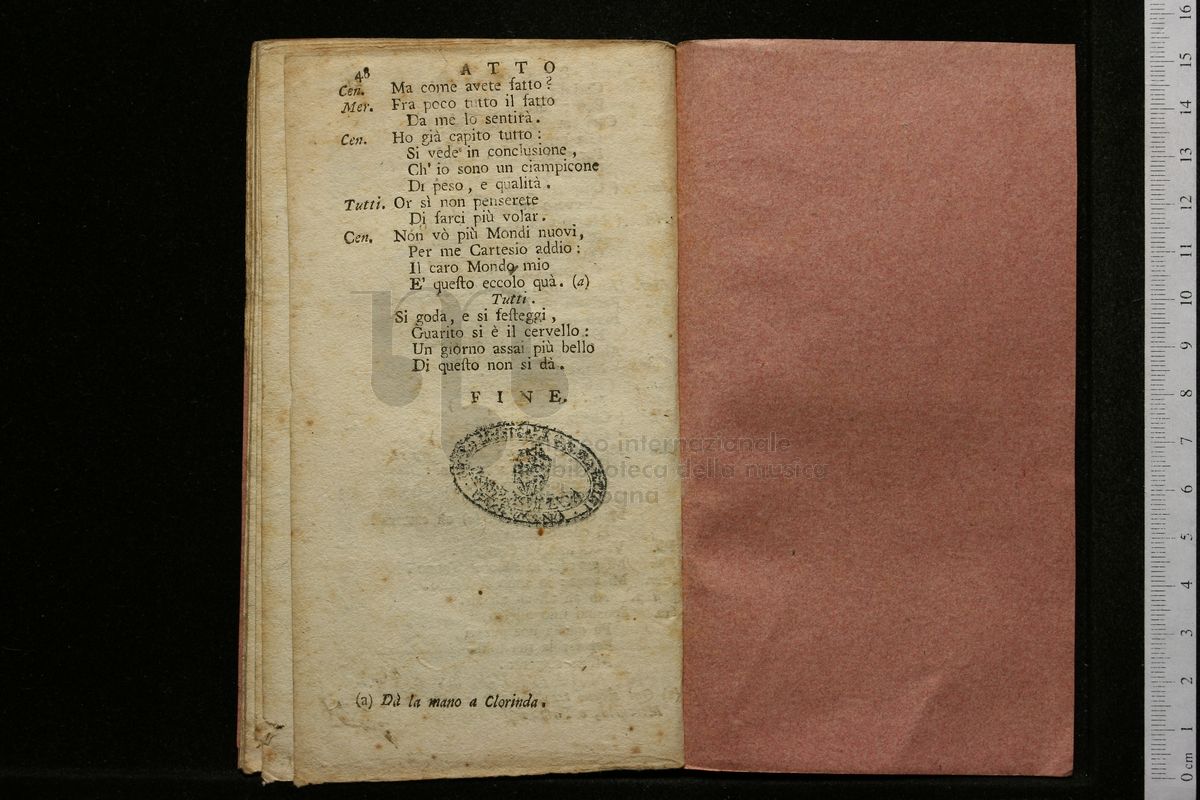 48
A T T O
Cen. Ma come avete fatto?
Mer. Fra poco tutto il fatto
Da me lo sentirà.
Cen. Ho già capito tutto:
Si vede in conclusione,
Ch' io sono un ciampicone
Di peso, e qualità.
Tutti. Or sì non penserete
Di farci più volar.
Cen. Non vò più Mondi nuovi,
Per me Cartesio addio:
Il caro Mondo mio
E' queſto eccolo quà. (a)
Tutti.
Si goda, e si feſteggi,
Guarito si è il cervello:
Un giorno assai più bello
Di queſto non si dà.
F I N E.
internazionale
biblioteca della musica
(a) Dà la mano a Clorinda.
0 cm 1 2 3 4 5 6 7 8 9 10 11 12 13 14 15 16